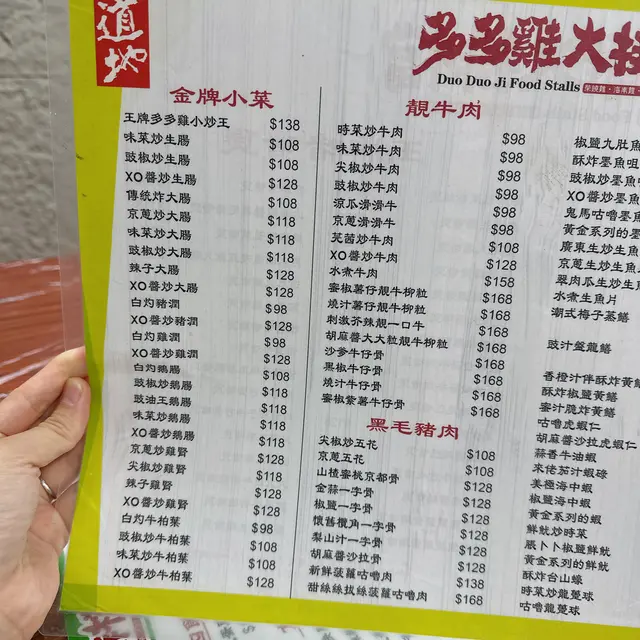 道地
多多雞大
Duo Duo Ji Food Stalls
金牌小菜
王牌多多雞小炒王 $138
味菜炒生腸 $108
豉椒炒生腸 $108
XO醬炒生腸 $128
傳統炸大腸 $108
京蔥炒大腸 $118
味菜炒大腸 $118
豉椒炒大腸 $118
辣子大腸 $128
XO醬炒大腸 $128
白灼豬潤 $98
XO炒豬潤 $128
白灼雞潤 $98
XO炒雞潤 $128
白灼鵝腸 $108
豉椒炒鵝腸 $118
豉油王鵝腸 $118
味菜炒鵝腸 $118
XO醬炒鵝腸 $128
京蔥炒雞腎 $118
尖椒炒雞腎 $118
辣子雞腎 $128
XO醬炒雞腎 $128
白灼牛柏葉 $98
豉椒炒牛柏葉 $108
味菜炒牛柏葉 $108
XO醬炒牛柏葉 $128
靚牛肉
時菜炒牛肉 $98
味菜炒牛肉 $98
尖椒炒牛肉 $98
豉椒炒牛肉 $98
涼瓜滑滑牛 $98
京蔥滑滑牛 $98
芫茜炒牛肉 $108
XO醬炒牛肉 $128
水煮牛肉 $158
蜜椒薯仔靚牛柳粒 $168
燒汁薯仔靚牛柳粒 $168
刺激芥辣靚一口牛 $168
胡麻醬大大粒靚牛柳粒 $168
沙爹牛仔骨 $168
黑椒牛仔骨 $168
燒汁牛仔骨 $168
蜜椒紫薯牛仔骨 $168
黑毛豬肉
尖椒炒五花 $108
京蔥五花 $108
山楂蜜桃京都骨 $128
金蒜一字骨 $128
椒鹽一字骨 $128
懷舊欖角一字骨 $128
梨山汁一字骨 $128
胡麻醬沙拉骨 $128
新鮮菠蘿咕嚕肉 $138
甜絲絲拔絲菠蘿咕嚕肉 $168
椒鹽九肚魚
酥炸墨魚咀
豉椒炒墨魚
XO醬炒墨魚
鬼馬咕嚕墨
黃金系列的墨
廣東生炒生魚
京蔥生炒生魚
翠肉瓜生炒生
水煮生魚片
潮式梅子蒸鱔
豉汁盤龍鱔
香橙汁伴酥炸黃鱔
酥炸椒鹽黃鱔
蜜汁脆炸黃鱔
咕嚕虎蝦仁
胡麻醬沙拉虎蝦仁
蒜香牛油蝦
來佬茄汁蝦碌
美極海中蝦
椒鹽海中蝦
黃金系列的蝦
鮮魷炒時菜
脹卜卜椒鹽鮮魷
黃金系列的鮮魷
酥炸台山蠔
時菜炒龍躉球
咕嚕龍躉球